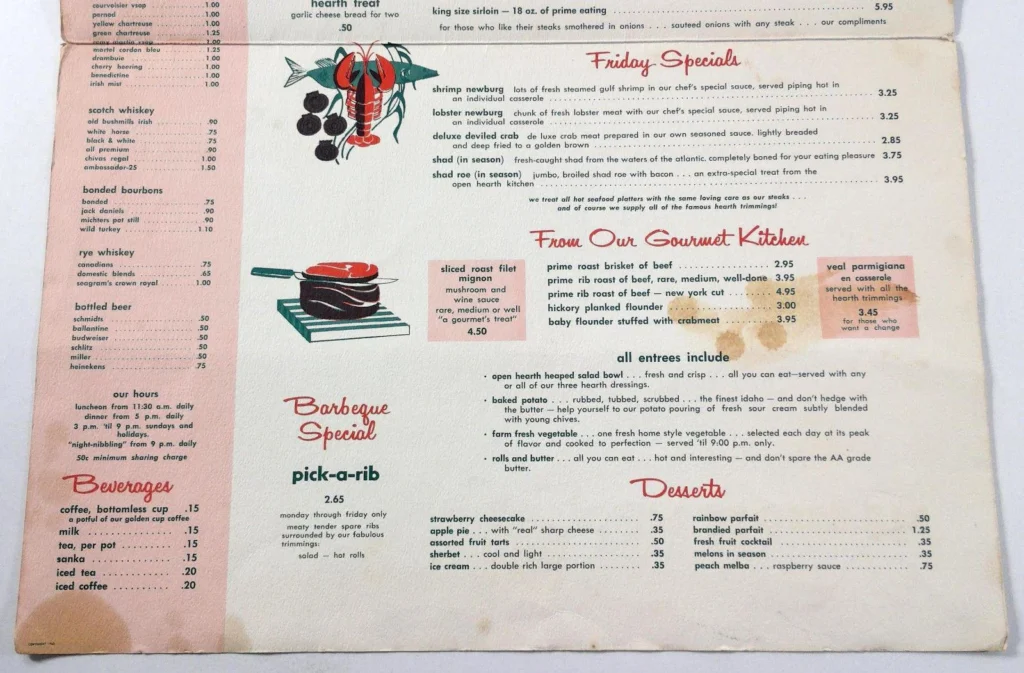 courvoisier vsop 1.00
pernod 1.00
yellow chartreuse 1.00
green chartreuse 1.25
remy martin vsop 1.00
martel cordon bleu 1.25
drambuie 1.00
cherry heering 1.00
benedictine 1.00
irish mist 1.00
scotch whiskey
old bushmills irish .90
white horse .75
black & white .75
all premium .90
chivas regal 1.00
ambassador-25 1.50
bonded bourbons
bonded .75
jack daniels .90
michters pot still .90
wild turkey 1.10
rye whiskey
canadians .75
domestic blends .65
seagram's crown royal 1.00
bottled beer
schmidts .50
ballantine .50
budweiser .50
schlitz .50
miller .50
heinekens .75
our hours
luncheon from 11:30 a.m. daily
dinner from 5 p.m. daily
3 p.m. 'til 9 p.m. sundays and
holidays.
"night-nibbling" from 9 p.m. daily
50c minimum sharing charge
Beverages
coffee, bottomless cup .15
a potful of our golden cup coffee
milk .15
tea, per pot .15
sanka .15
iced tea .20
iced coffee .20
hearth treat
garlic cheese bread for two
.50
king size sirloin — 18 oz. of prime eating 5.95
for those who like their steaks smothered in onions . . . sauteed onions with any steak . . . our compliments
Friday Specials
shrimp newburg lots of fresh steamed gulf shrimp in our chef's special sauce, served piping hot in
an individual casserole 3.25
lobster newburg chunk of fresh lobster meat with our chef's special sauce, served piping hot in
an individual casserole 3.25
deluxe deviled crab de luxe crab meat prepared in our own seasoned sauce. lightly breaded
and deep fried to a golden brown 2.85
shad (in season) fresh-caught shad from the waters of the atlantic. completely boned for your eating pleasure 3.75
shad roe (in season) jumbo, broiled shad roe with bacon . . . an extra-special treat from the
open hearth kitchen 3.95
we treat all hot seafood platters with the same loving care as our steaks . . .
and of course we supply all of the famous hearth trimmings!
From Our Gourmet Kitchen
sliced roast filet
mignon
mushroom and
wine sauce
rare, medium or well
"a gourmet's treat"
4.50
prime roast brisket of beef 2.95
prime rib roast of beef, rare, medium, well-done 3.95
prime rib roast of beef — new york cut 4.95
hickory planked flounder 3:00
baby flounder stuffed with crabmeat 3.95
veal parmigiana
en casserole
served with all the
hearth trimmings
3.45
for those who
want a change
all entrees include
· open hearth heaped salad bowl . . . fresh and crisp . . . all you can eat—served with any
or all of our three hearth dressings.
· baked potato . . . rubbed, tubbed, scrubbed . . . the finest idaho — and don't hedge with
the butter — help yourself to our potato pouring of fresh sour cream subtly blended
with young chives.
· farm fresh vegetable . . . one fresh home style vegetable . . . selected each day at its peak
of flavor and cooked to perfection — served 'til 9:00 p.m. only.
· rolls and butter . . . all you can eat . . . hot and interesting — and don't spare the AA grade
butter.
Barbeque
Special
pick-a-rib
2.65
monday through friday only
meaty tender spare ribs
surrounded by our fabulous
trimmings:
salad — hot rolls
Desserts
strawberry cheesecake .75
apple pie . . . with "real" sharp cheese .35
assorted fruit tarts .50
sherbet . . . cool and light .35
ice cream . . . double rich large portion .35
rainbow parfait .50
brandied parfait 1.25
fresh fruit cocktail .35
melons in season .35
peach melba . . . raspberry sauce .75